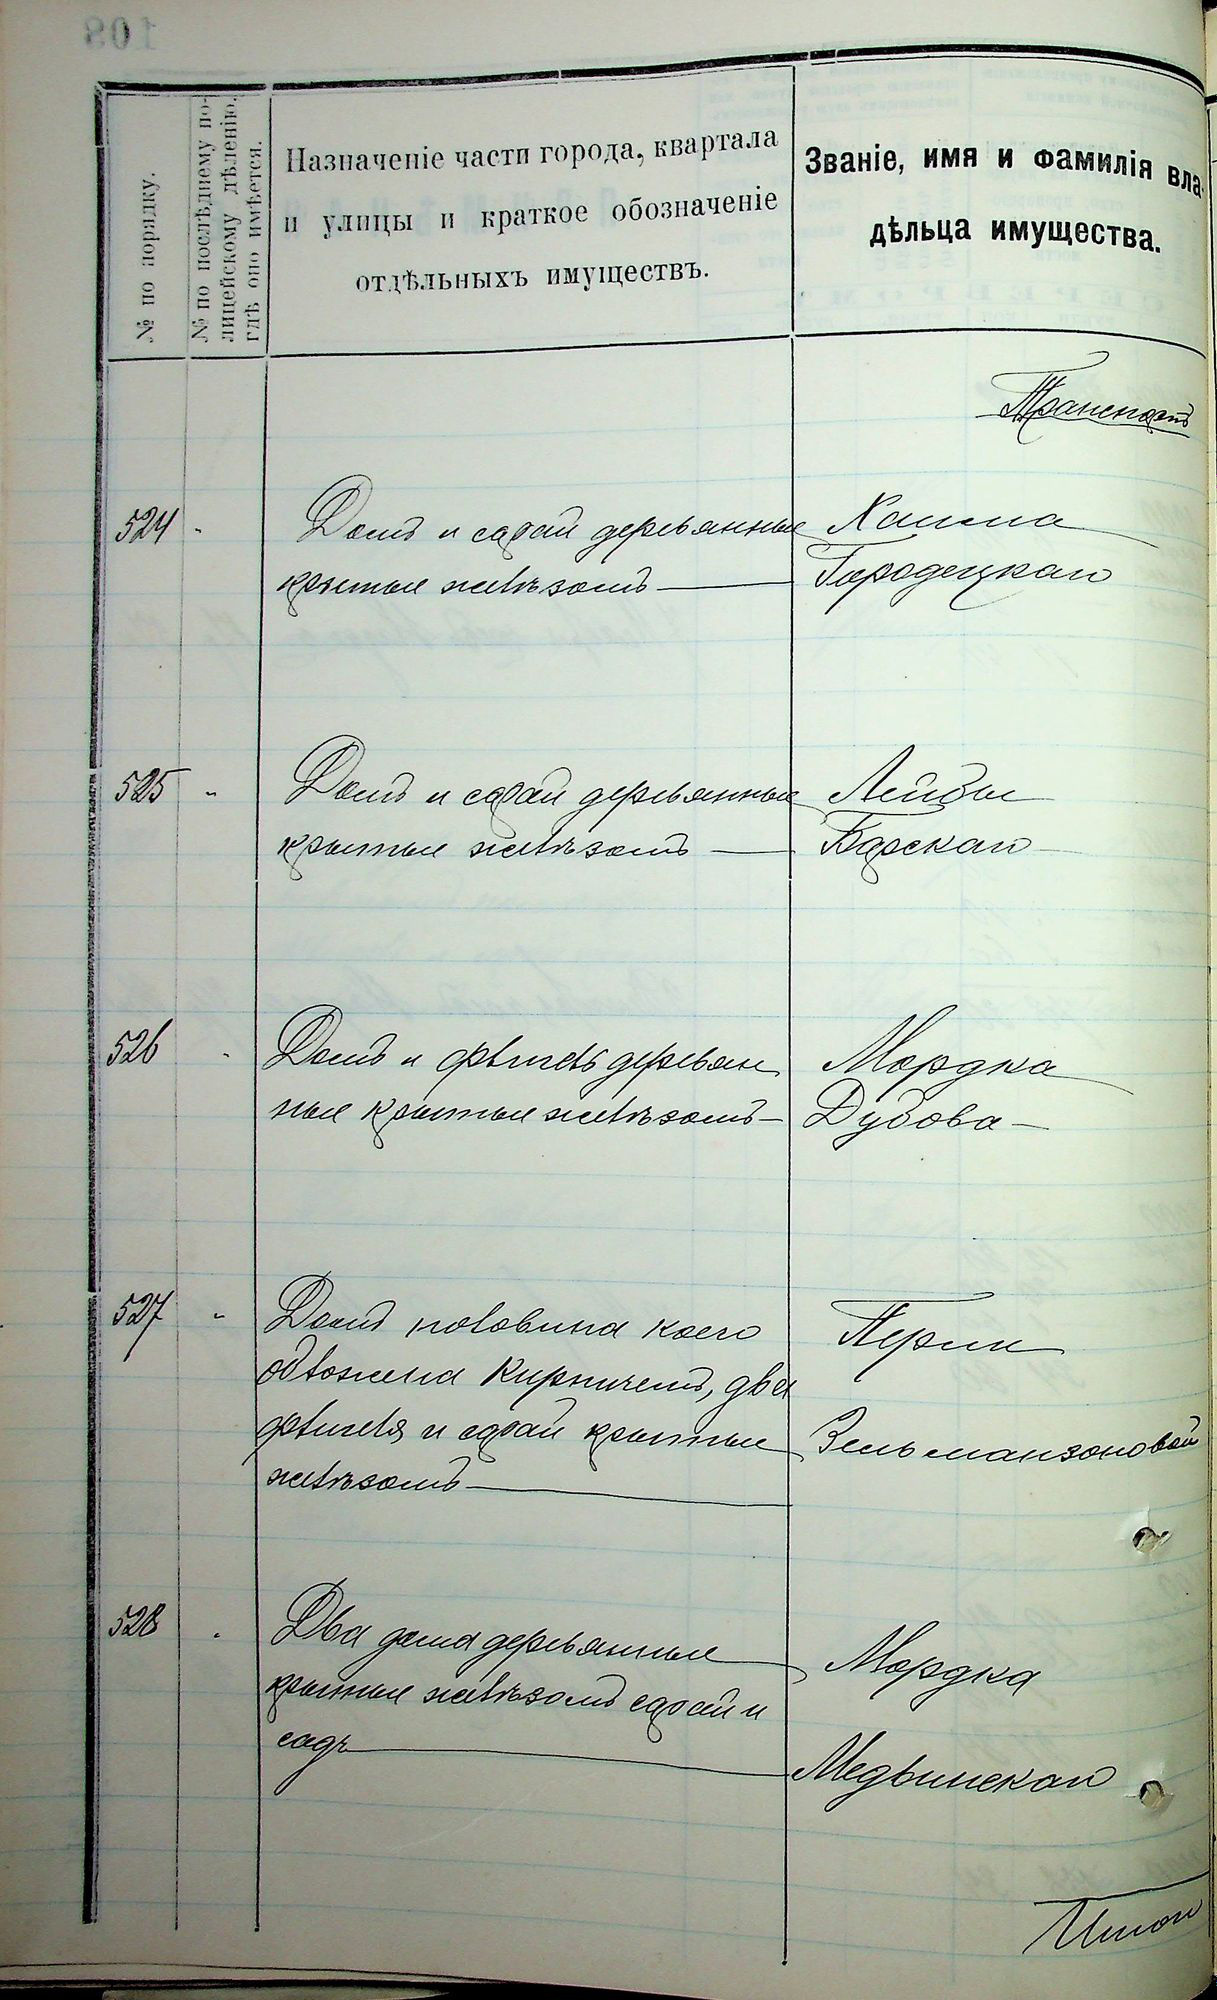 № по порядку.
№ по послѣднему по-
лицейскому дѣленію,
гдѣ оно имѣется.
Назначеніе части города, квартала
и улицы и краткое обозначеніе
отдѣльныхъ имуществъ.
Званіе, имя и фамилія вла-
дѣльца имущества.
Транспортъ
524 "
Домъ и сарай деревянные
крытые желѣзомъ
Хаима
Городецкаго
525 "
Домъ и сарай деревянные
крытые желѣзомъ
Лейбы
Барскаго
526 "
Домъ и флигель деревян
ные крытые желѣзомъ
Мордка
Дубова
527 "
Домъ половина коего
обложена кирпичемъ, два
флигеля и сарай крытые
желѣзомъ
Перли
Зельманзоновой
528 "
Два дома деревянные
крытые желѣзомъ сарай и
садъ
Мордка
Медвинскаго
Итого